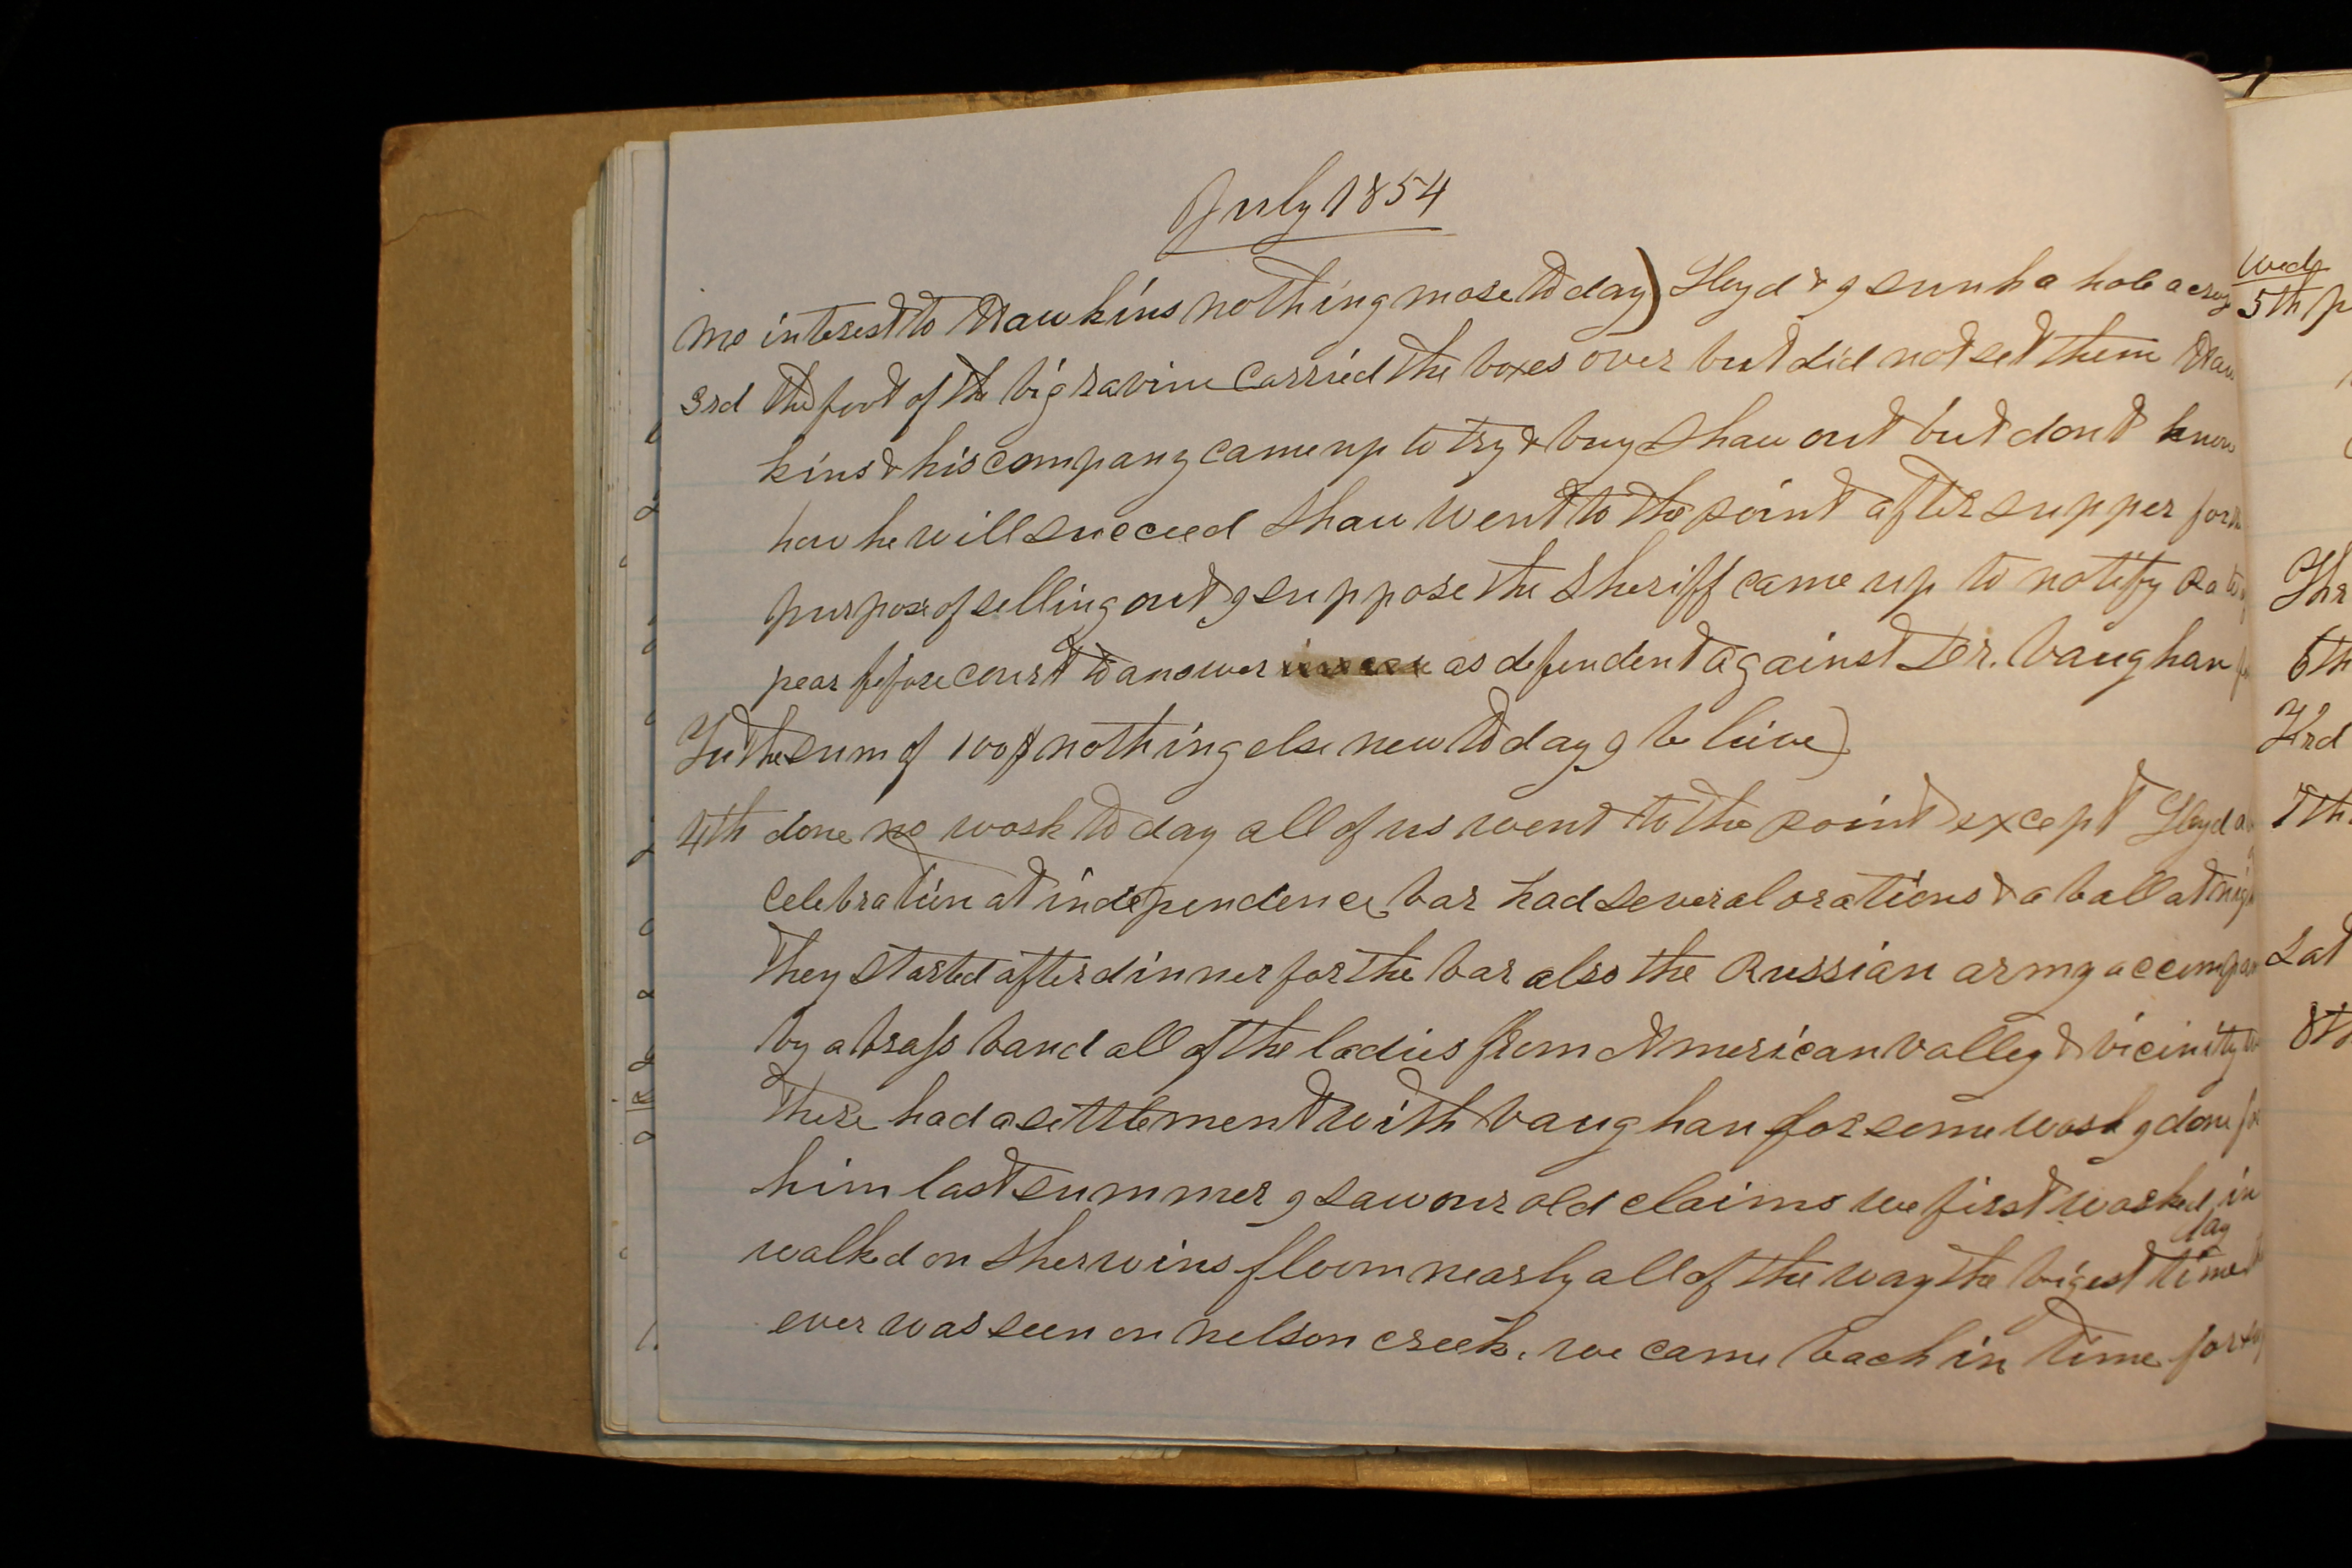 July 1854
Mo interest to Hawkins nothing more to day) Lloyd & I sunk a hole across
3rd the foot of the big ravine carried the boxes over but did not set them Haw
kins & his company came up to try & buy Shaw out but dont know
how he will succeed Shaw went to the point after supper for the
purpose of selling out I suppose the Sheriff came up to notify
pear before court to answer as defendent against Dr. Vaughan
Tu the sum of 100$ nothing else new to day I beleive)
4th done no work to day all of us went to the point except Lloyd a
Celebration at independence bar had several orations & a ball at nigh
They started after dinner for the bar also the Russian army accompan
by a brass band all of the ladies from American valley & vicinity
there had a settlement with Vaughan for some work I done for
him last summer I saw our old claims we first worked in
day
walked on Sherwins floom nearly all of the way the bigest time
ever was seen on nelson creek. we came back in time for
Wed
5th
Thr
6th
Frd
7th
Sat
8th